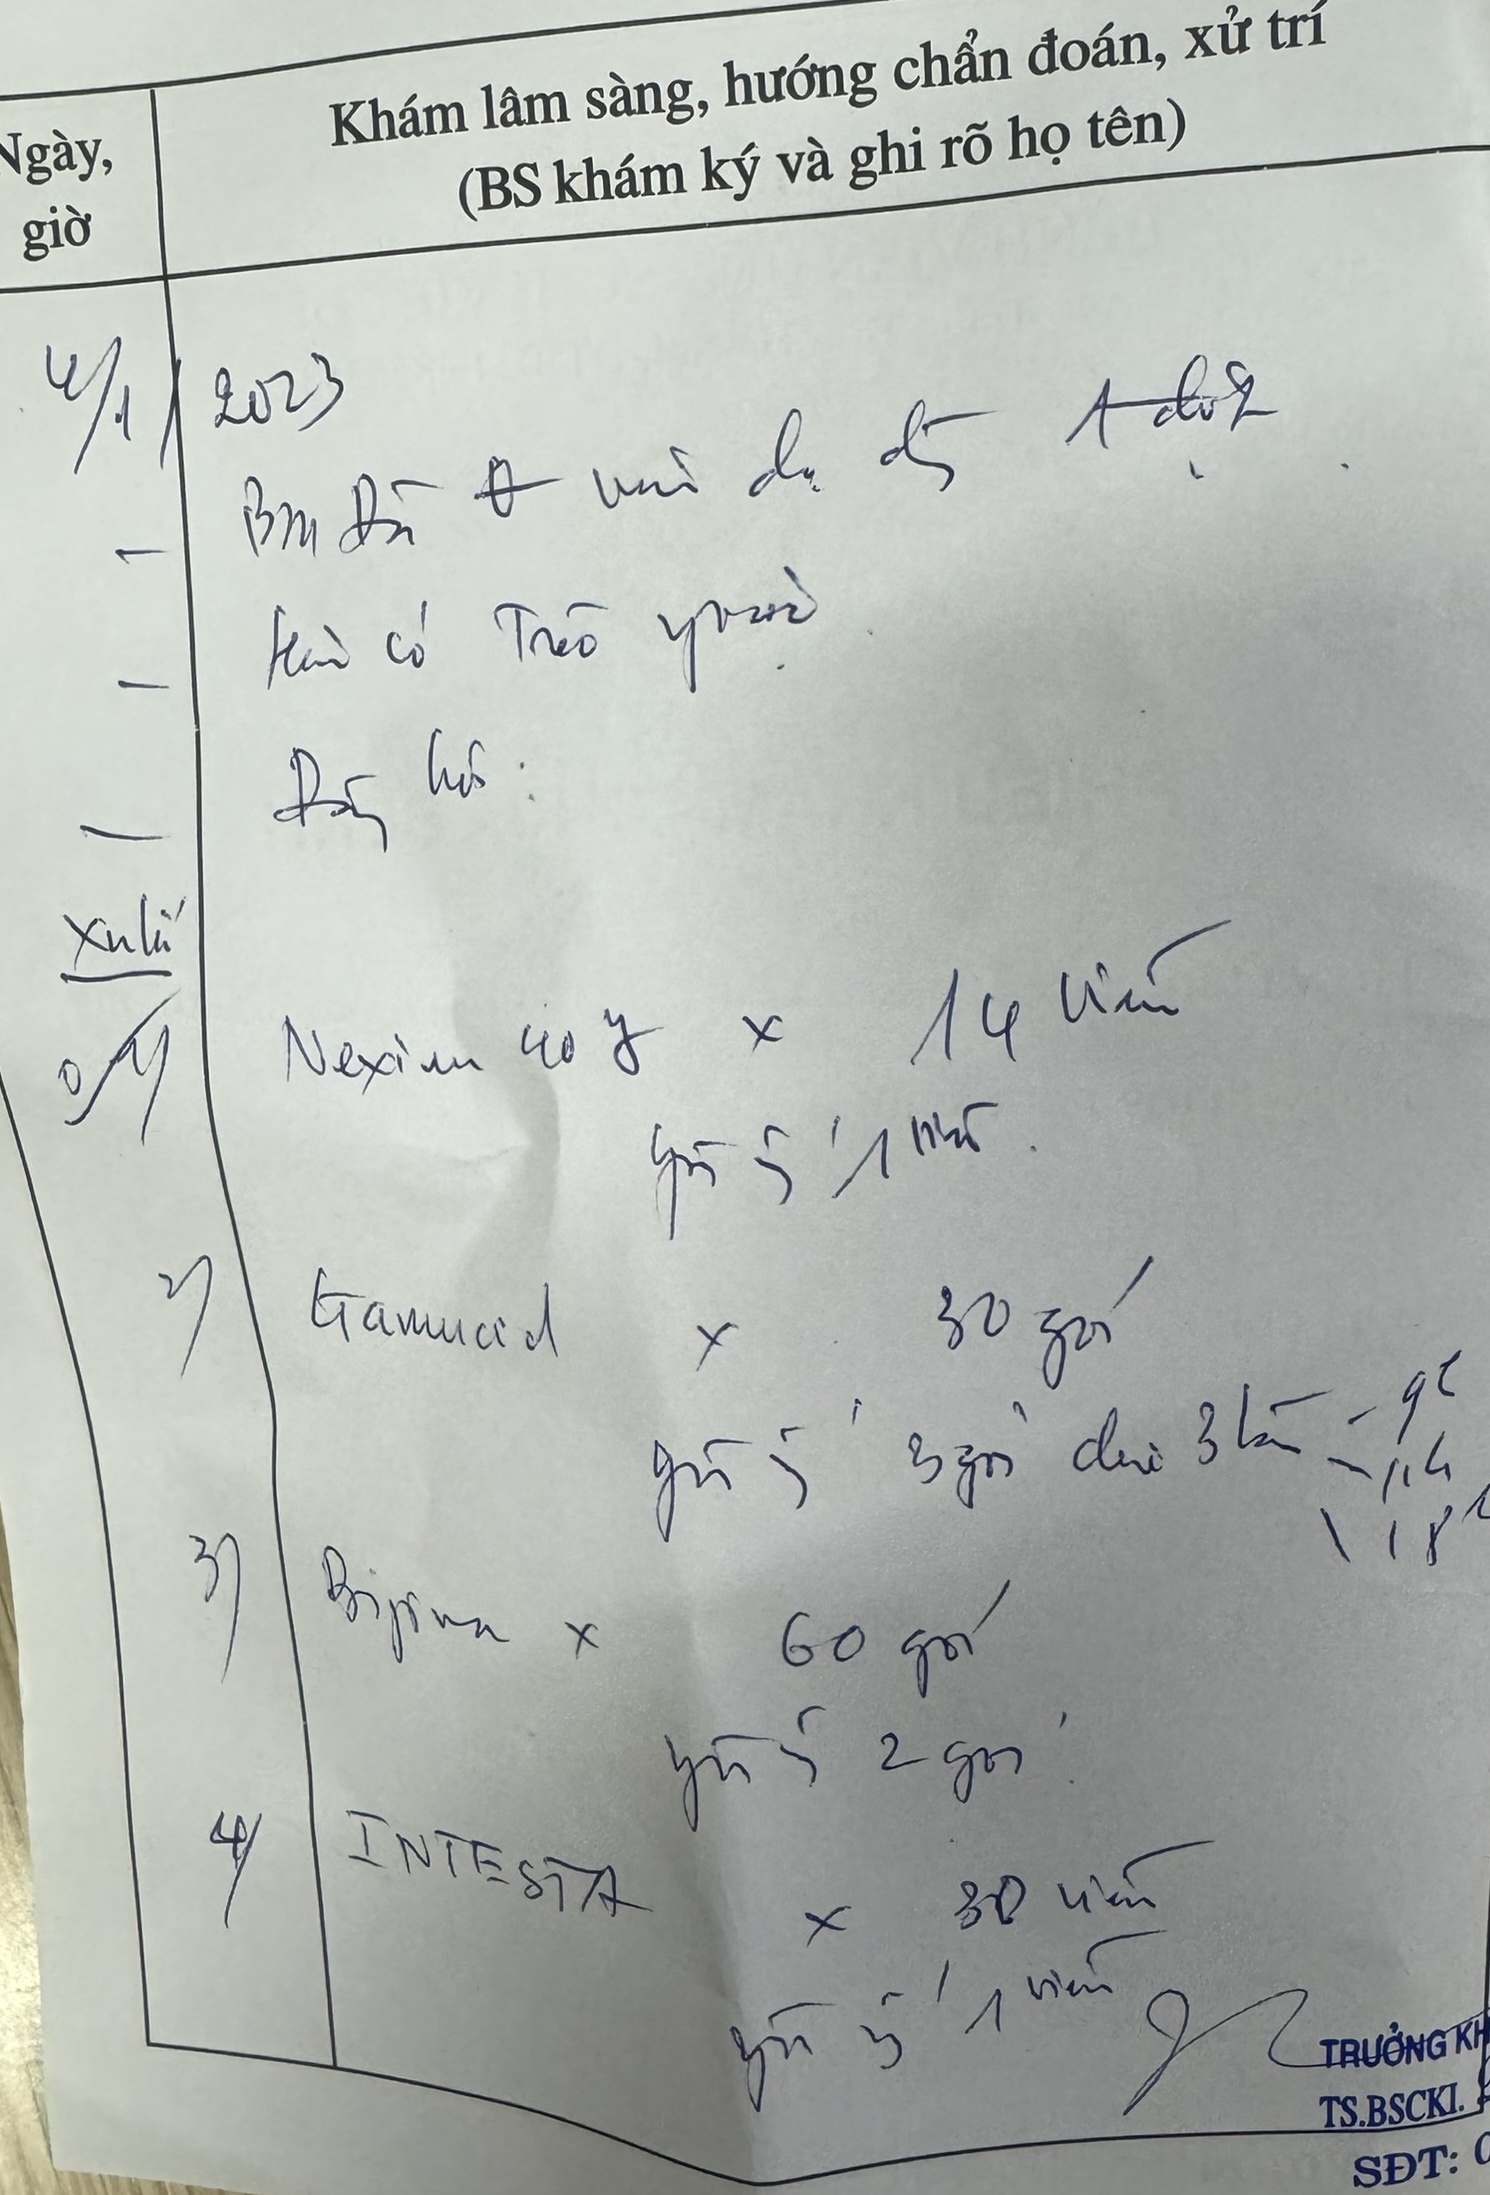 Khám lâm sàng, hướng chẩn đoán, xử trí
Ngày, giờ
(BS khám ký và ghi rõ họ tên)
4/1/2023
- BN đã dạ dày 1 đợt
- Hiện có Trào ngược
- Đồng hồ:
Xử lí
1) Nexium 40 mg x 14 viên
ngày uống 1 viên
2) Gamucid x 30 gói
ngày uống 3 gói chia 3 lần - 9h
- 14h
\ 18h
3) x 60 gói
ngày uống 2 gói
4) INTESTA x 30 viên
ngày uống 1 viên
TRƯỞNG KH
TS.BSCKI.
SĐT: 0